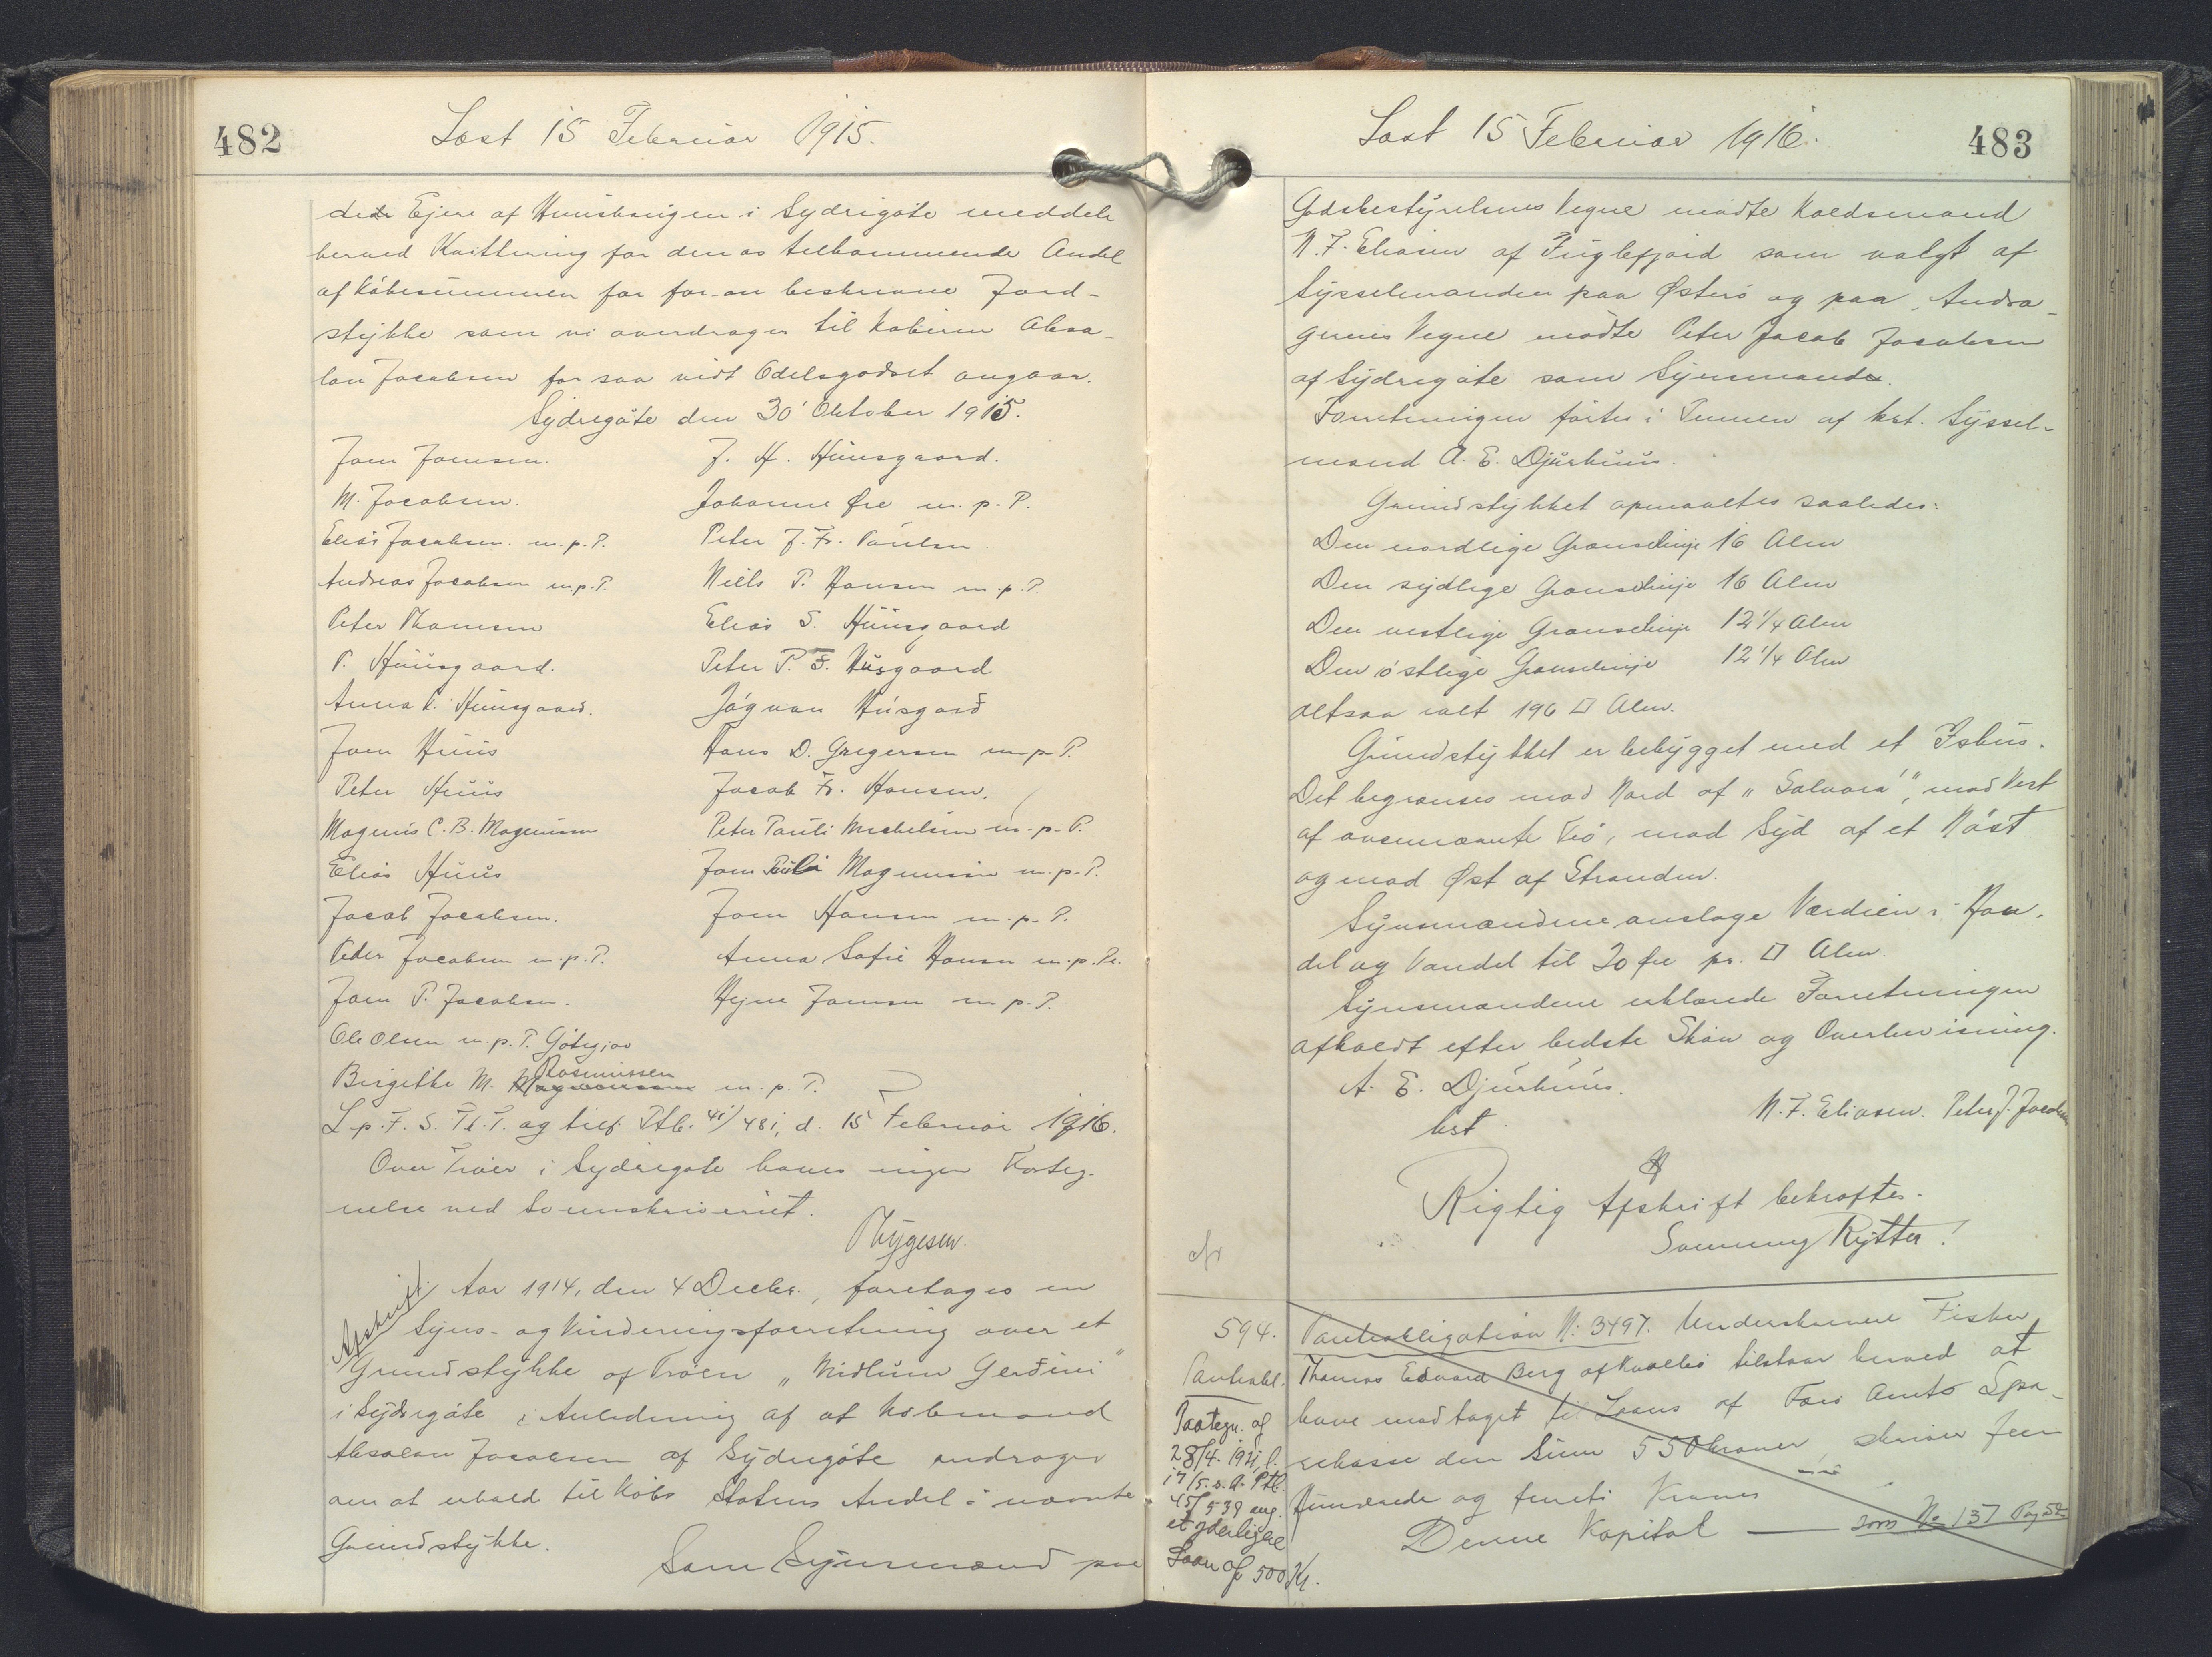 482
Læst 15 Februar 1915.
dede Ejere af Huushaugen i Sydrigöte meddele
herved Kvittering for den os tilkommende Andel
af Købesummen for for-an beskrevne Jord-
stykke som vi overdrager til Køberen Absa-
lon Jacobsen for saa vidt Odelsgodset angaar.
Sydregöte den 30' Oktober 1915.
Joen Joensen. J. H. Huusgaard.
M. Jacobsen. Johanne Øre m. p. P.
Elias Jacobsen. m. p. P. Peter J. Fr. Poulsen
Andreas Jacobsen m. p. P. Niels P. Hansen m. p. P.
Peter Thomsen Elias S. Huusgaard
P. Huusgaard. Peter P. F. Húsgaard
Anna K. Huusgaard. Jógvan Húsgarð
Joen Huus Hans D. Gregersen m. p. P.
Peter Huus Jacob Fr. Hansen.
Magnus C. B. Magnussen Peter Pauli Michelsen m. p. P.
Elias Huus Joen Pauli Magnussen m. p. P.
Jacob Jacobsen. Joen Hansen m. p. P.
Peder Jacobsen m. p. P. Anna Sofie Hansen m. p. P.
Joen P. Jacobsen. Hejne Joensen m. p. P.
Ole Olsen m. p. P. Götugjov
Rasmussen
Birgithe M. m. p. P.
L. p. F. S. Tl. T. og tilf. Ptb. 41/481, d. 15 Februar 1916.
Over Trøer i Sydregøte haves ingen Forteg-
nelse ved Sorenskriveriet.
Thygesen.
Afskrift.
Aar 1914, den 4 Decbr., foretoges en
Syns- og Vurderingsforretning over et
Grundstykke af Trøen „Miðlum Gerðini"
i Sydrigøte i Anledning af at Købmand
Absalon Jacobsen af Sydregøte andrager
om at erhold til Købs Statens Andel i nævnte
Grundstykke.
Som Synsmænd paa
Læst 15 Februar 1916.
483
Godsbestyrelsens Vegne mødte Kaldsmand
N. F. Eliasen af Fuglefjord som valgt af
Sysselmanden paa Østerø og paa Andra-
gerens Vegne mødte Peter Jacob Jacobsen
af Sydregøte som Synsmand.
Forretningen førtes i Pennen af kst. Syssel-
mand A. E. Djurhuus.
Grundstykket opmaaltes saaledes:
Den nordlige Grænselinje 16 Alen
Den sydlige Grænselinje 16 Alen
Den vestlige Grænselinje 12 1/4 Alen
Den østlige Grænselinje 12 1/4 Alen
altsaa ialt 196 □ Alen.
Grundstykket er bebygget med et Ishus.
Det begrænses mod Nord af „Galvará", mod Vest
af ovennævnte Trø, mod Syd af et Nøst
og mod Øst af Stranden.
Synsmændene anslage Værdien i Han-
del og Vandel til 20 Øre pr. □ Alen.
Synsmændene erklærede Forretningen
afholdt efter bedste Skøn og Overbevisning.
A. E. Djurhuus.
kst.
N. F. Eliasen. Peter J. Jacobsen
Rigtig Afskrift bekræftes.
Sorening Rytter.
cfr
594.
Panteobl.
Paategn. af
28/4. 1921, l.
17/5. s. A. Ptb.
45/539 ang.
et yderligere
Laan af 500 Kr.
Panteobligation No: 3497. Underskrevne Fisker
Thomas Edvard Berg af Kvalbø tilstaar herved at
have modtaget til Laans af Færø Amts Spa-
rekasse den Sum 550 Kroner, skriver fem
Hundrede og femti Kroner
Denne Kapital — som No 137 Pag 52